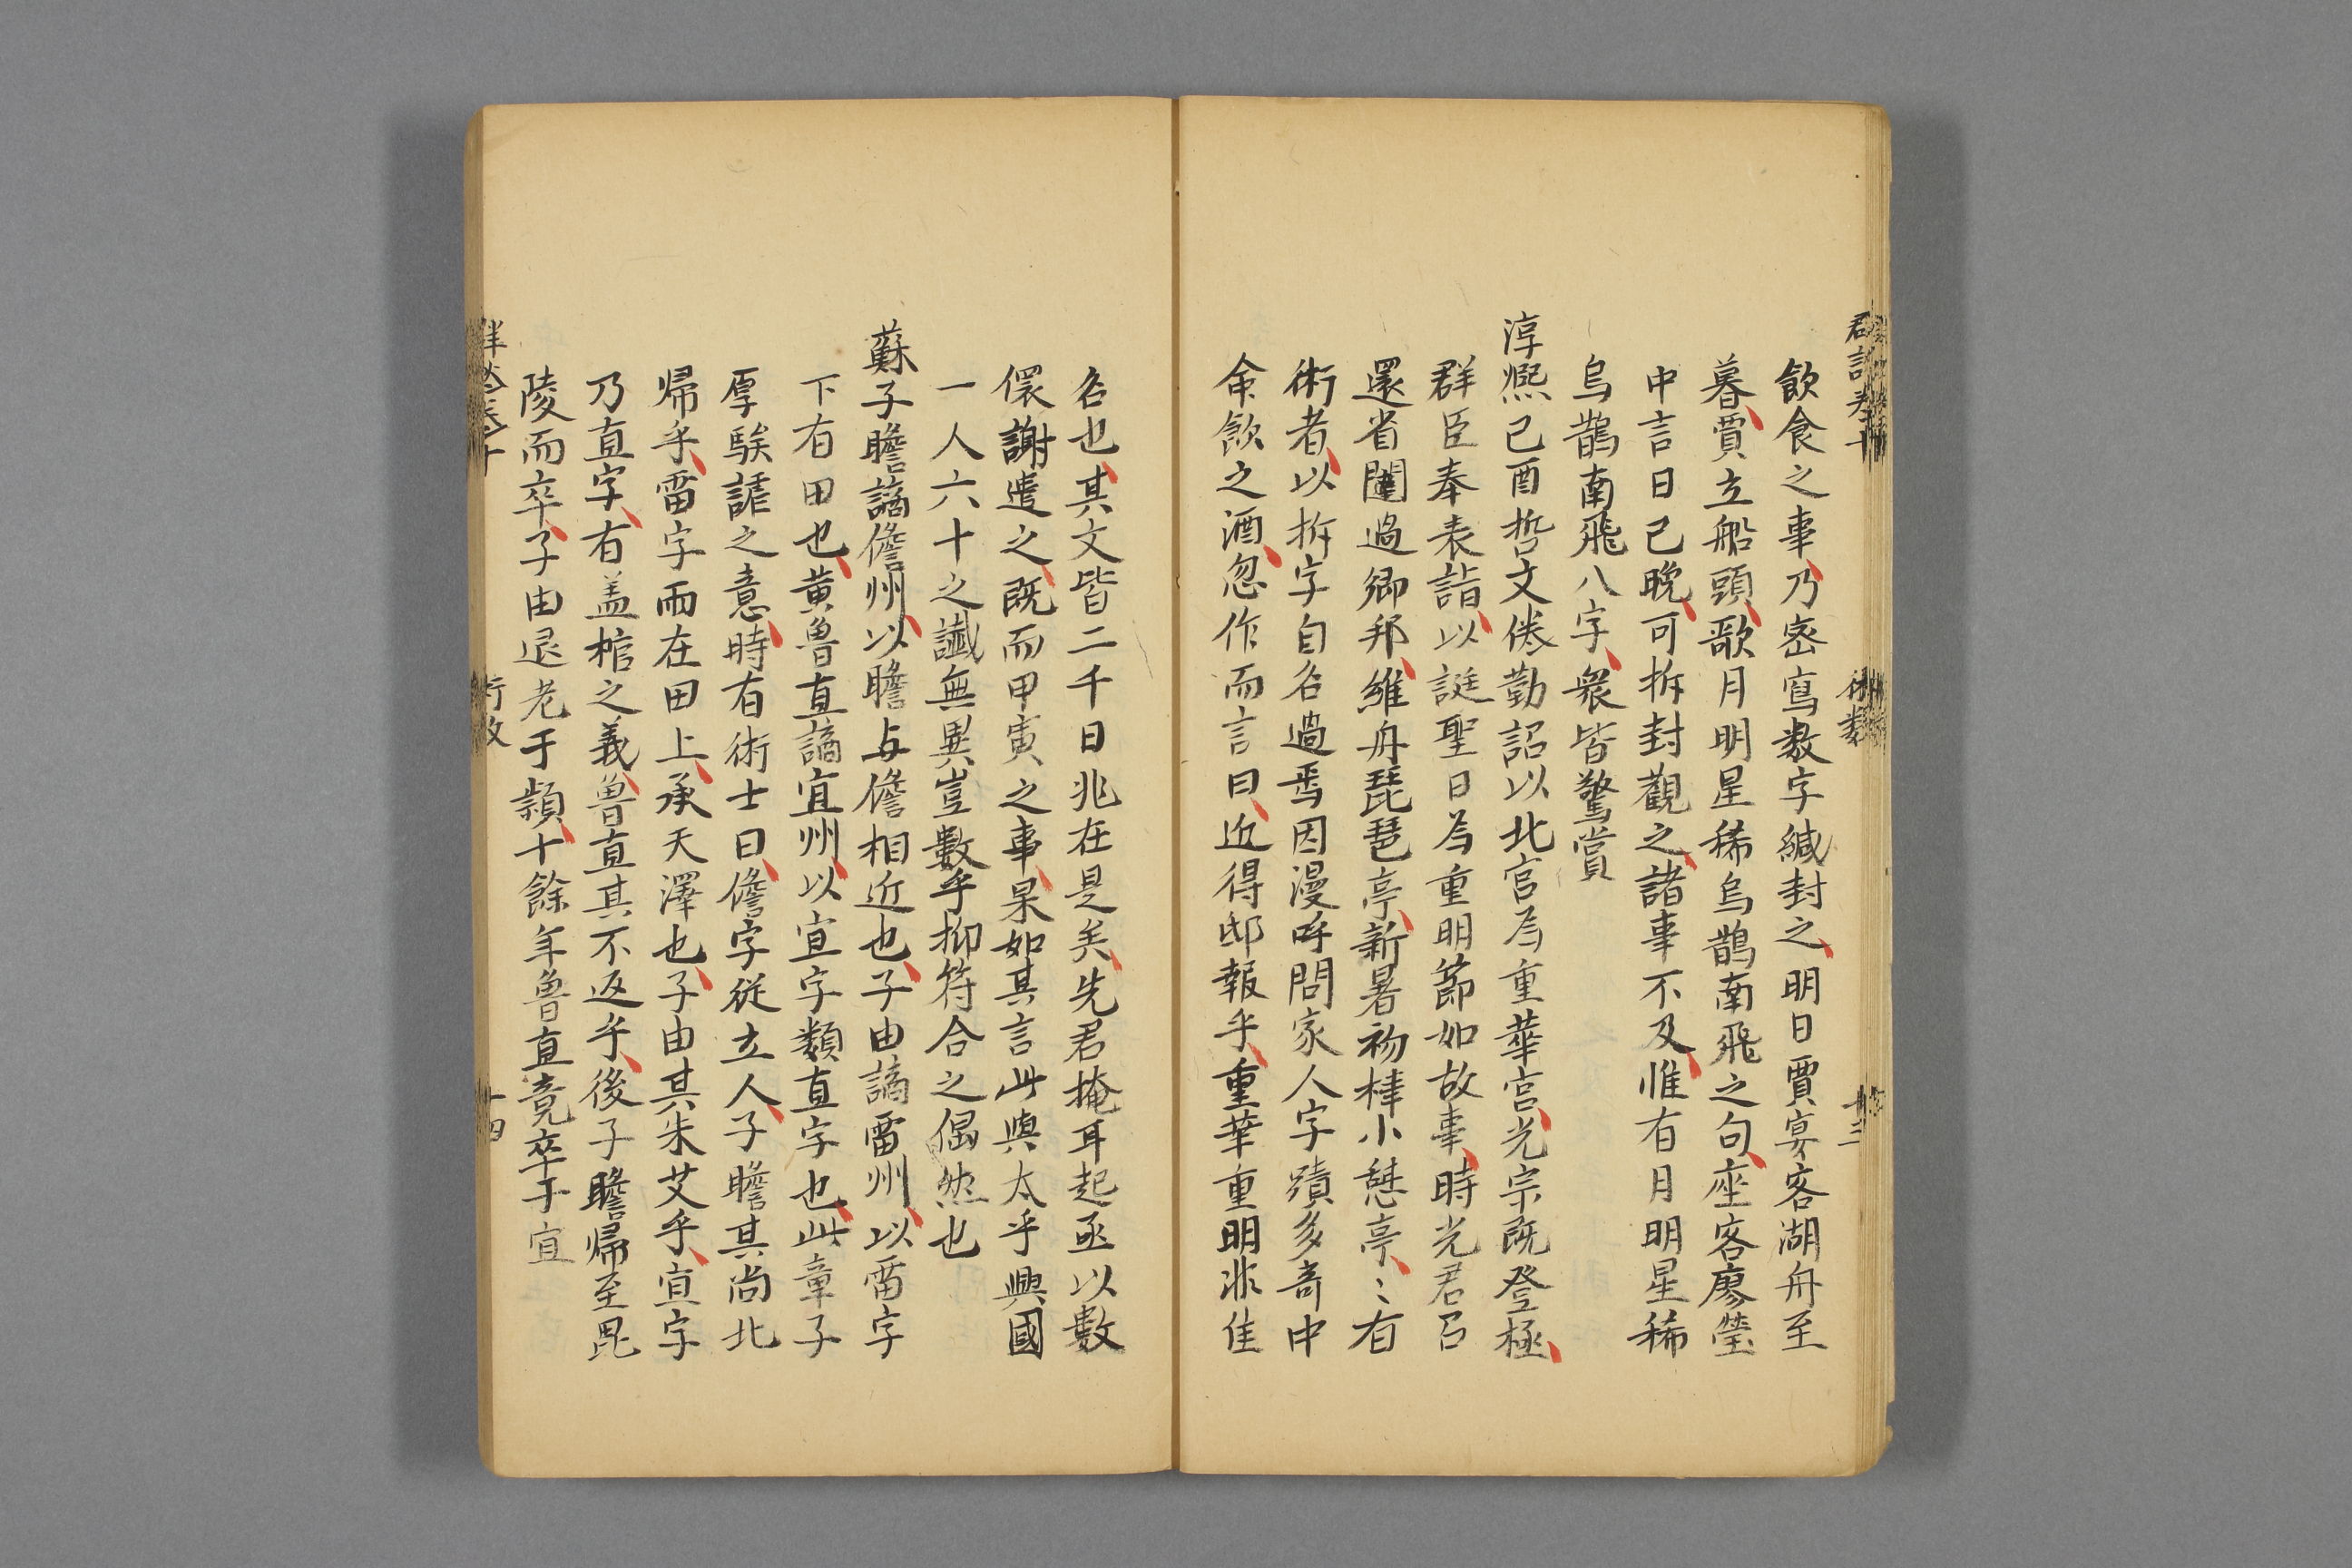 飲食之事乃密寫数字緘封之明日賈宴客湖舟至
暮賈立船頭歌月明星稀烏鵲南飛之句座客廖瑩
中言日已晚可拆封觀之諸事不及惟有月明星稀
烏鵲南飛八字衆皆驚賞
淳熙己酉哲文倦勤詔以北宫為重華宫光宗既登極
群臣奉表詣以誕聖日為重明節如故事時光君召
還省闥過鄉邦維舟琵琶亭新暑初袢小憇亭〻有
術者以拆字自名過焉因漫呼問家人字蹟多奇中
命飲之酒忽作而言曰近得邸報乎重華重明非佳
名也其文皆二千日兆在是矣先君掩耳起亟以數
儇謝遣之既而甲寅之事果如其言此與太乎興國
一人六十之讖無異豈數乎抑符合之偶然也
蘇子瞻謫儋州以瞻与儋相近也子由謫雷州以雷字
下有田也黄魯直謫宜州以宜字類直字也此章子
厚騃謔之意時有術士曰儋字從立人子瞻其尚北
帰乎雷字雨在田上承天澤也子由其未艾乎宜字
乃直字有盖棺之義魯直其不返乎後子瞻帰至毘
陵而卒子由退老于潁十餘年魯直竟卒于宜